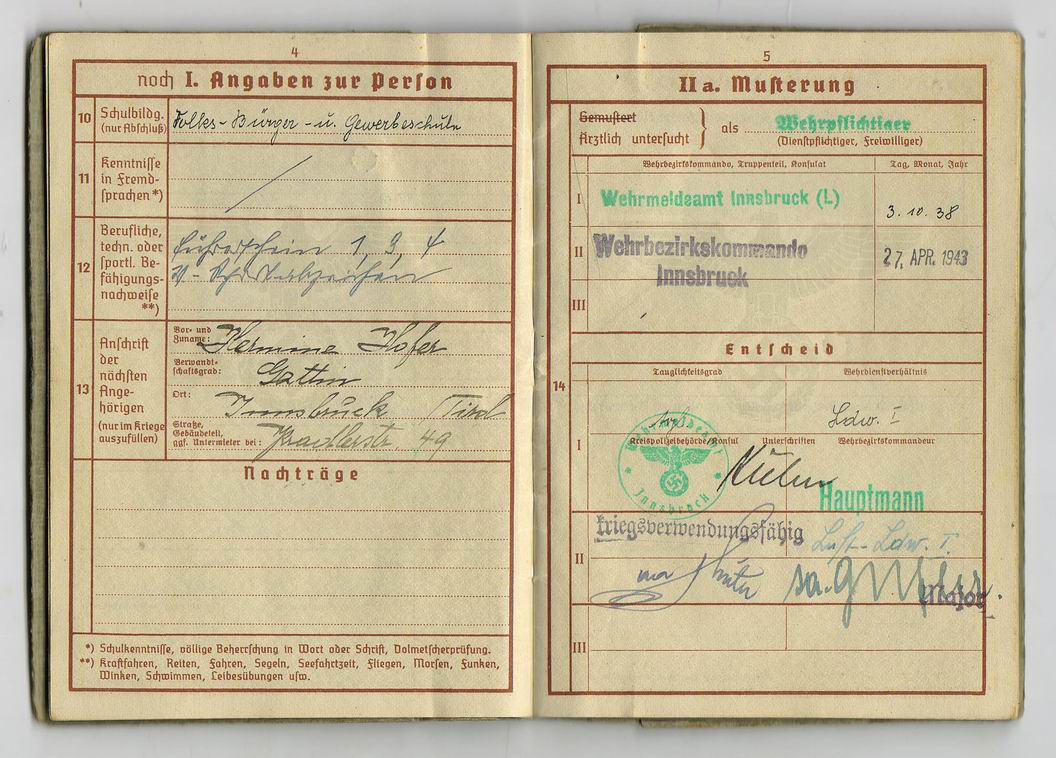 4
noch I. Angaben zur Person
10 Schulbildg. (nur Abschluß)
Volks-Bürger-u. Gewerbeschule
11 Kenntnisse in Fremdsprachen *)
12 Berufliche, techn. oder sportl. Befähigungsnachweise **)
Führerschein 1, 3, 4
13 Anschrift der nächsten Angehörigen (nur im Kriege auszufüllen)
Vor- und Zuname: Hermine Hofer
Verwandtschaftsgrad: Gattin
Ort: Innsbruck Tirol
Straße, Gebäudeteil, ggf. Untermieter bei: Pradlerstr. 49
Nachträge
*) Schulkenntnisse, völlige Beherrschung in Wort oder Schrift, Dolmetscherprüfung.
**) Kraftfahren, Reiten, Fahren, Segeln, Seefahrtzeit, Fliegen, Morsen, Funken,
Winken, Schwimmen, Leibesübungen usw.
5
II a. Musterung
Gemustert
Ärztlich untersucht } als Wehrpflichtiger
(Dienstpflichtiger, Freiwilliger)
Wehrbezirkskommando, Truppenteil, Konsulat Tag, Monat, Jahr
I Wehrmeldeamt Innsbruck (L) 3. 10. 38
II Wehrbezirkskommando Innsbruck 27. APR. 1943
III
Entscheid
14
Tauglichkeitsgrad Wehrdienstverhältnis
Ldw. I
Kreispolizeibehörde/Konsul Unterschriften Wehrbezirkskommandeur
I
Innsbruck
Hauptmann
kriegsverwendungsfähig Luft-Ldw. I.
II
Major
III